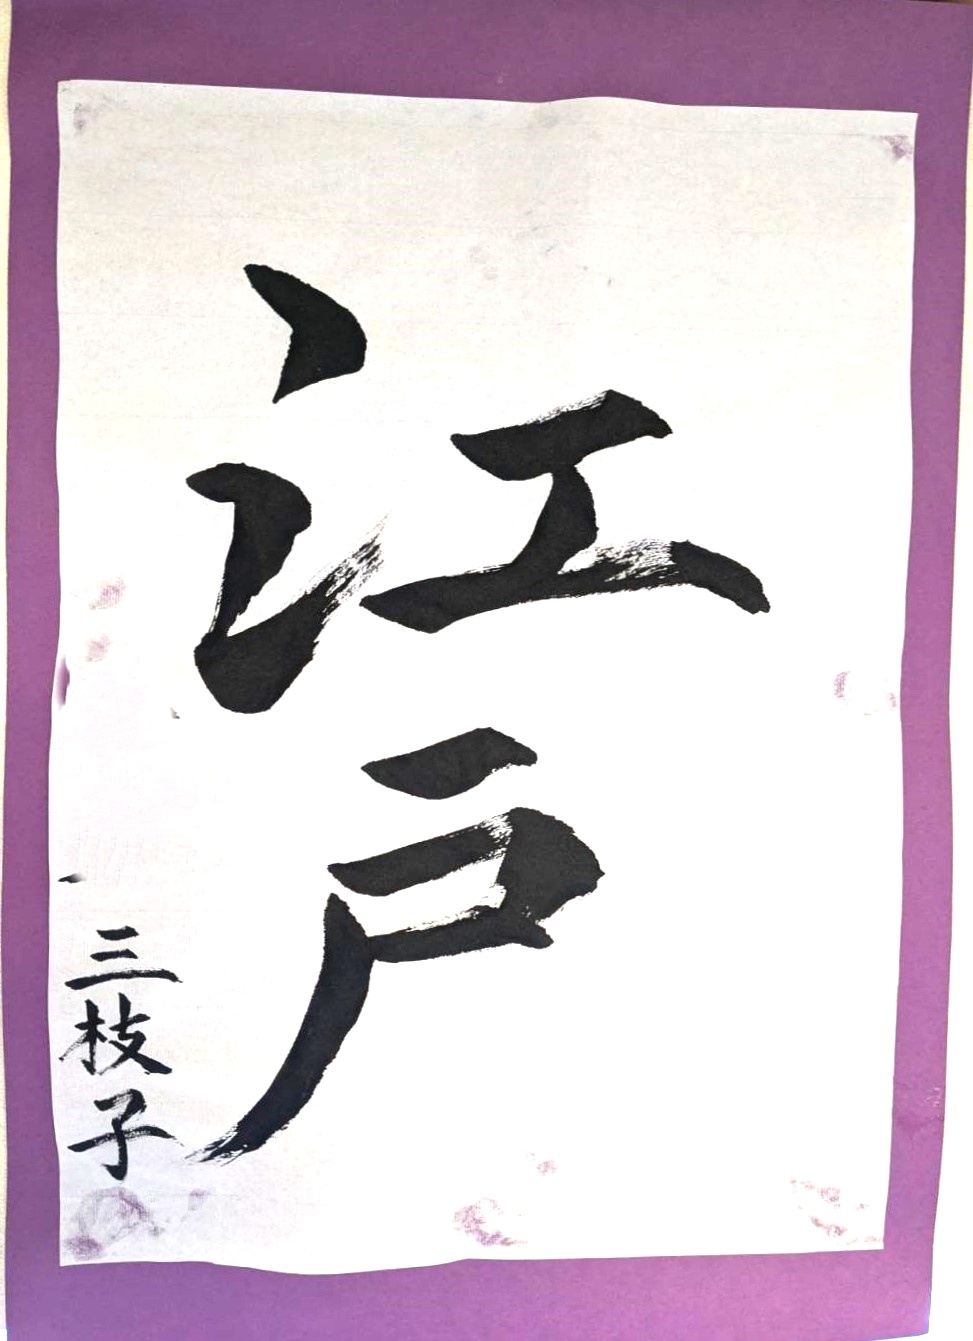 江戸
三枝子